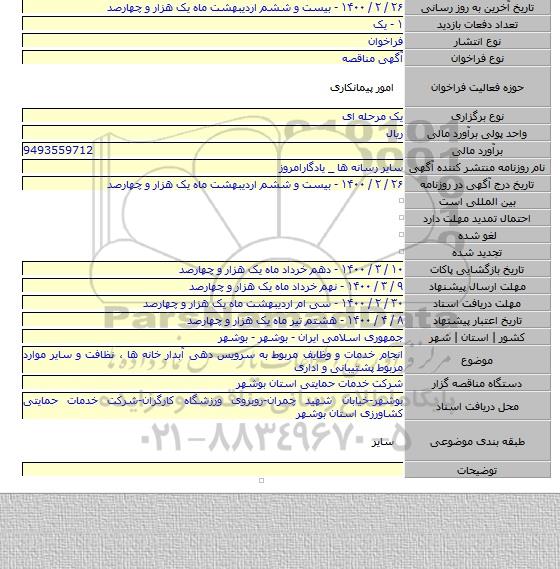 تاریخ آخرین به روز رسانی ۲۶ / ۲ / ۱۴۰۰ - بیست و ششم اردیبهشت ماه یک هزار و چهارصد
تعداد دفعات بازدید ۱ - یک
نوع انتشار فراخوان
نوع فراخوان آگهی مناقصه
حوزه فعالیت فراخوان امور پیمانکاری
نوع برگزاری یک مرحله ای
واحد پولی برآورد مالی ریال
برآورد مالی 9493559712
نام روزنامه منتشر کننده آگهی سایر رسانه ها _ یادگارامروز
تاریخ درج آگهی در روزنامه ۲۶ / ۲ / ۱۴۰۰ - بیست و ششم اردیبهشت ماه یک هزار و چهارصد
بین المللی است
احتمال تمدید مهلت دارد
لغو شده
تجدید شده
تاریخ بازگشایی پاکات ۱۰ / ۳ / ۱۴۰۰ - دهم خرداد ماه یک هزار و چهارصد
مهلت ارسال پیشنهاد ۹ / ۳ / ۱۴۰۰ - نهم خرداد ماه یک هزار و چهارصد
مهلت دریافت اسناد ۳۰ / ۲ / ۱۴۰۰ - سی ام اردیبهشت ماه یک هزار و چهارصد
تاریخ اعتبار پیشنهاد ۸ / ۴ / ۱۴۰۰ - هشتم تیر ماه یک هزار و چهارصد
کشور | استان | شهر جمهوری اسلامی ایران - بوشهر - بوشهر
موضوع انجام خدمات و وظایف مربوط به سرویس دهی آبدار خانه ها ، نظافت و سایر موارد
مربوط پشتیبانی و اداری
دستگاه مناقصه گزار شرکت خدمات حمایتی استان بوشهر
محل دریافت اسناد بوشهر-خیابان شهید چمران-روبروی ورزشگاه کارگران-شرکت خدمات حمایتی
کشاورزی استان بوشهر
طبقه بندی موضوعی سایر
توضیحات
۰۲۱-۸۸۳۴۹۶۷۰-۵